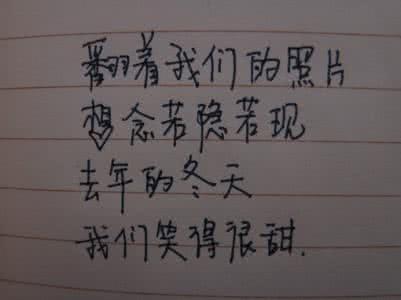 翻着我们的照片
想念若隐若现
去年的冬天
我们笑得很甜.